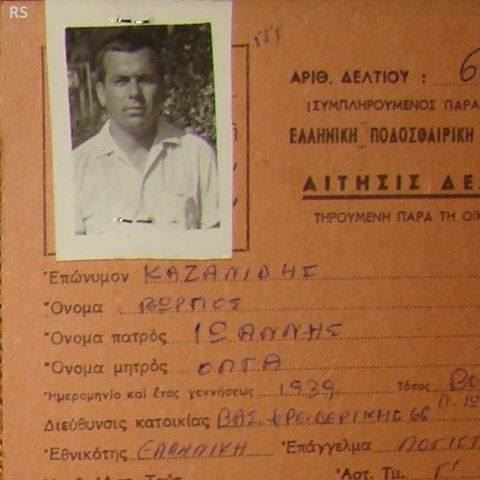 RS
ΑΡΙΘ. ΔΕΛΤΙΟΥ : 6
(ΣΥΜΠΛΗΡΟΥΜΕΝΟΣ ΠΑΡΑ
ΕΛΛΗΝΙΚΗ ΠΟΔΟΣΦΑΙΡΙΚΗ
ΑΙΤΗΣΙΣ ΔΕ
ΤΗΡΟΥΜΕΝΗ ΠΑΡΑ ΤΗ ΟΙ
Ἐπώνυμον ΚΑΖΑΝΙΔΗΣ
Ὄνομα
Ὄνομα πατρὸς ΙΩΑΝΝΗΣ
Ὄνομα μητρὸς ΟΛΓΑ
Ἡμερομηνία καὶ ἔτος γεννήσεως 1939 τόπος
Διεύθυνσις κατοικίας ΒΑΣ. ΦΡΕΙΔΕΡΙΚΗΣ 66
Ἐθνικότης ΕΛΛΗΝΙΚΗ Ἐπάγγελμα ΛΟΓΙΣΤ
Ἀστ. Τμ. Γ'